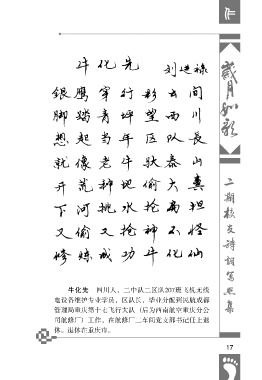 牛化先
刘进禄
银鹰穿行彩云间
脚踏青坪望西川
想起当年区队长
就像老牛驮泰山
开荒种地偷大粪
下河挑水抢扁担
又偷又抢神不怪
修炼成功牛化仙
牛化先 四川人，二中队二区队207班飞机无线
电设备维护专业学员，区队长，毕业分配到民航成都
管理局重庆第十七飞行大队（后为西南航空重庆分公
司航修厂）工作。在航修厂二车间党支部书记任上退
休。退休在重庆市。
岁月如歌
二期校友诗词写照集
17